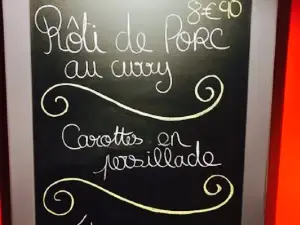 8€90
Rôti de Porc
au curry
Carottes en
persillade